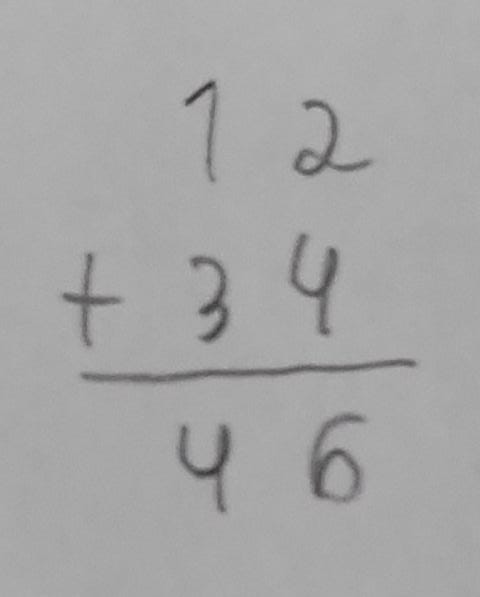 12
+ 34
46